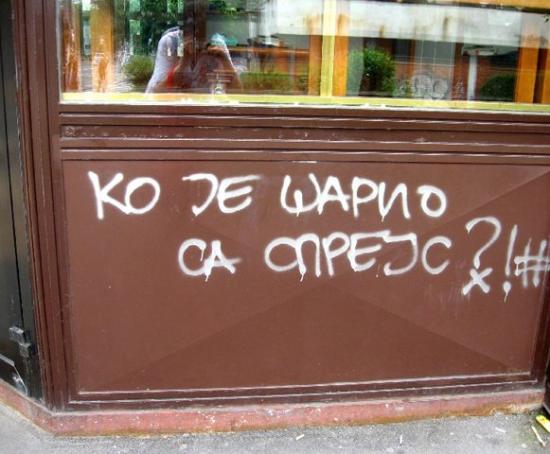 КО ЈЕ ШАРИО
СА ОПРЕЈС?!#